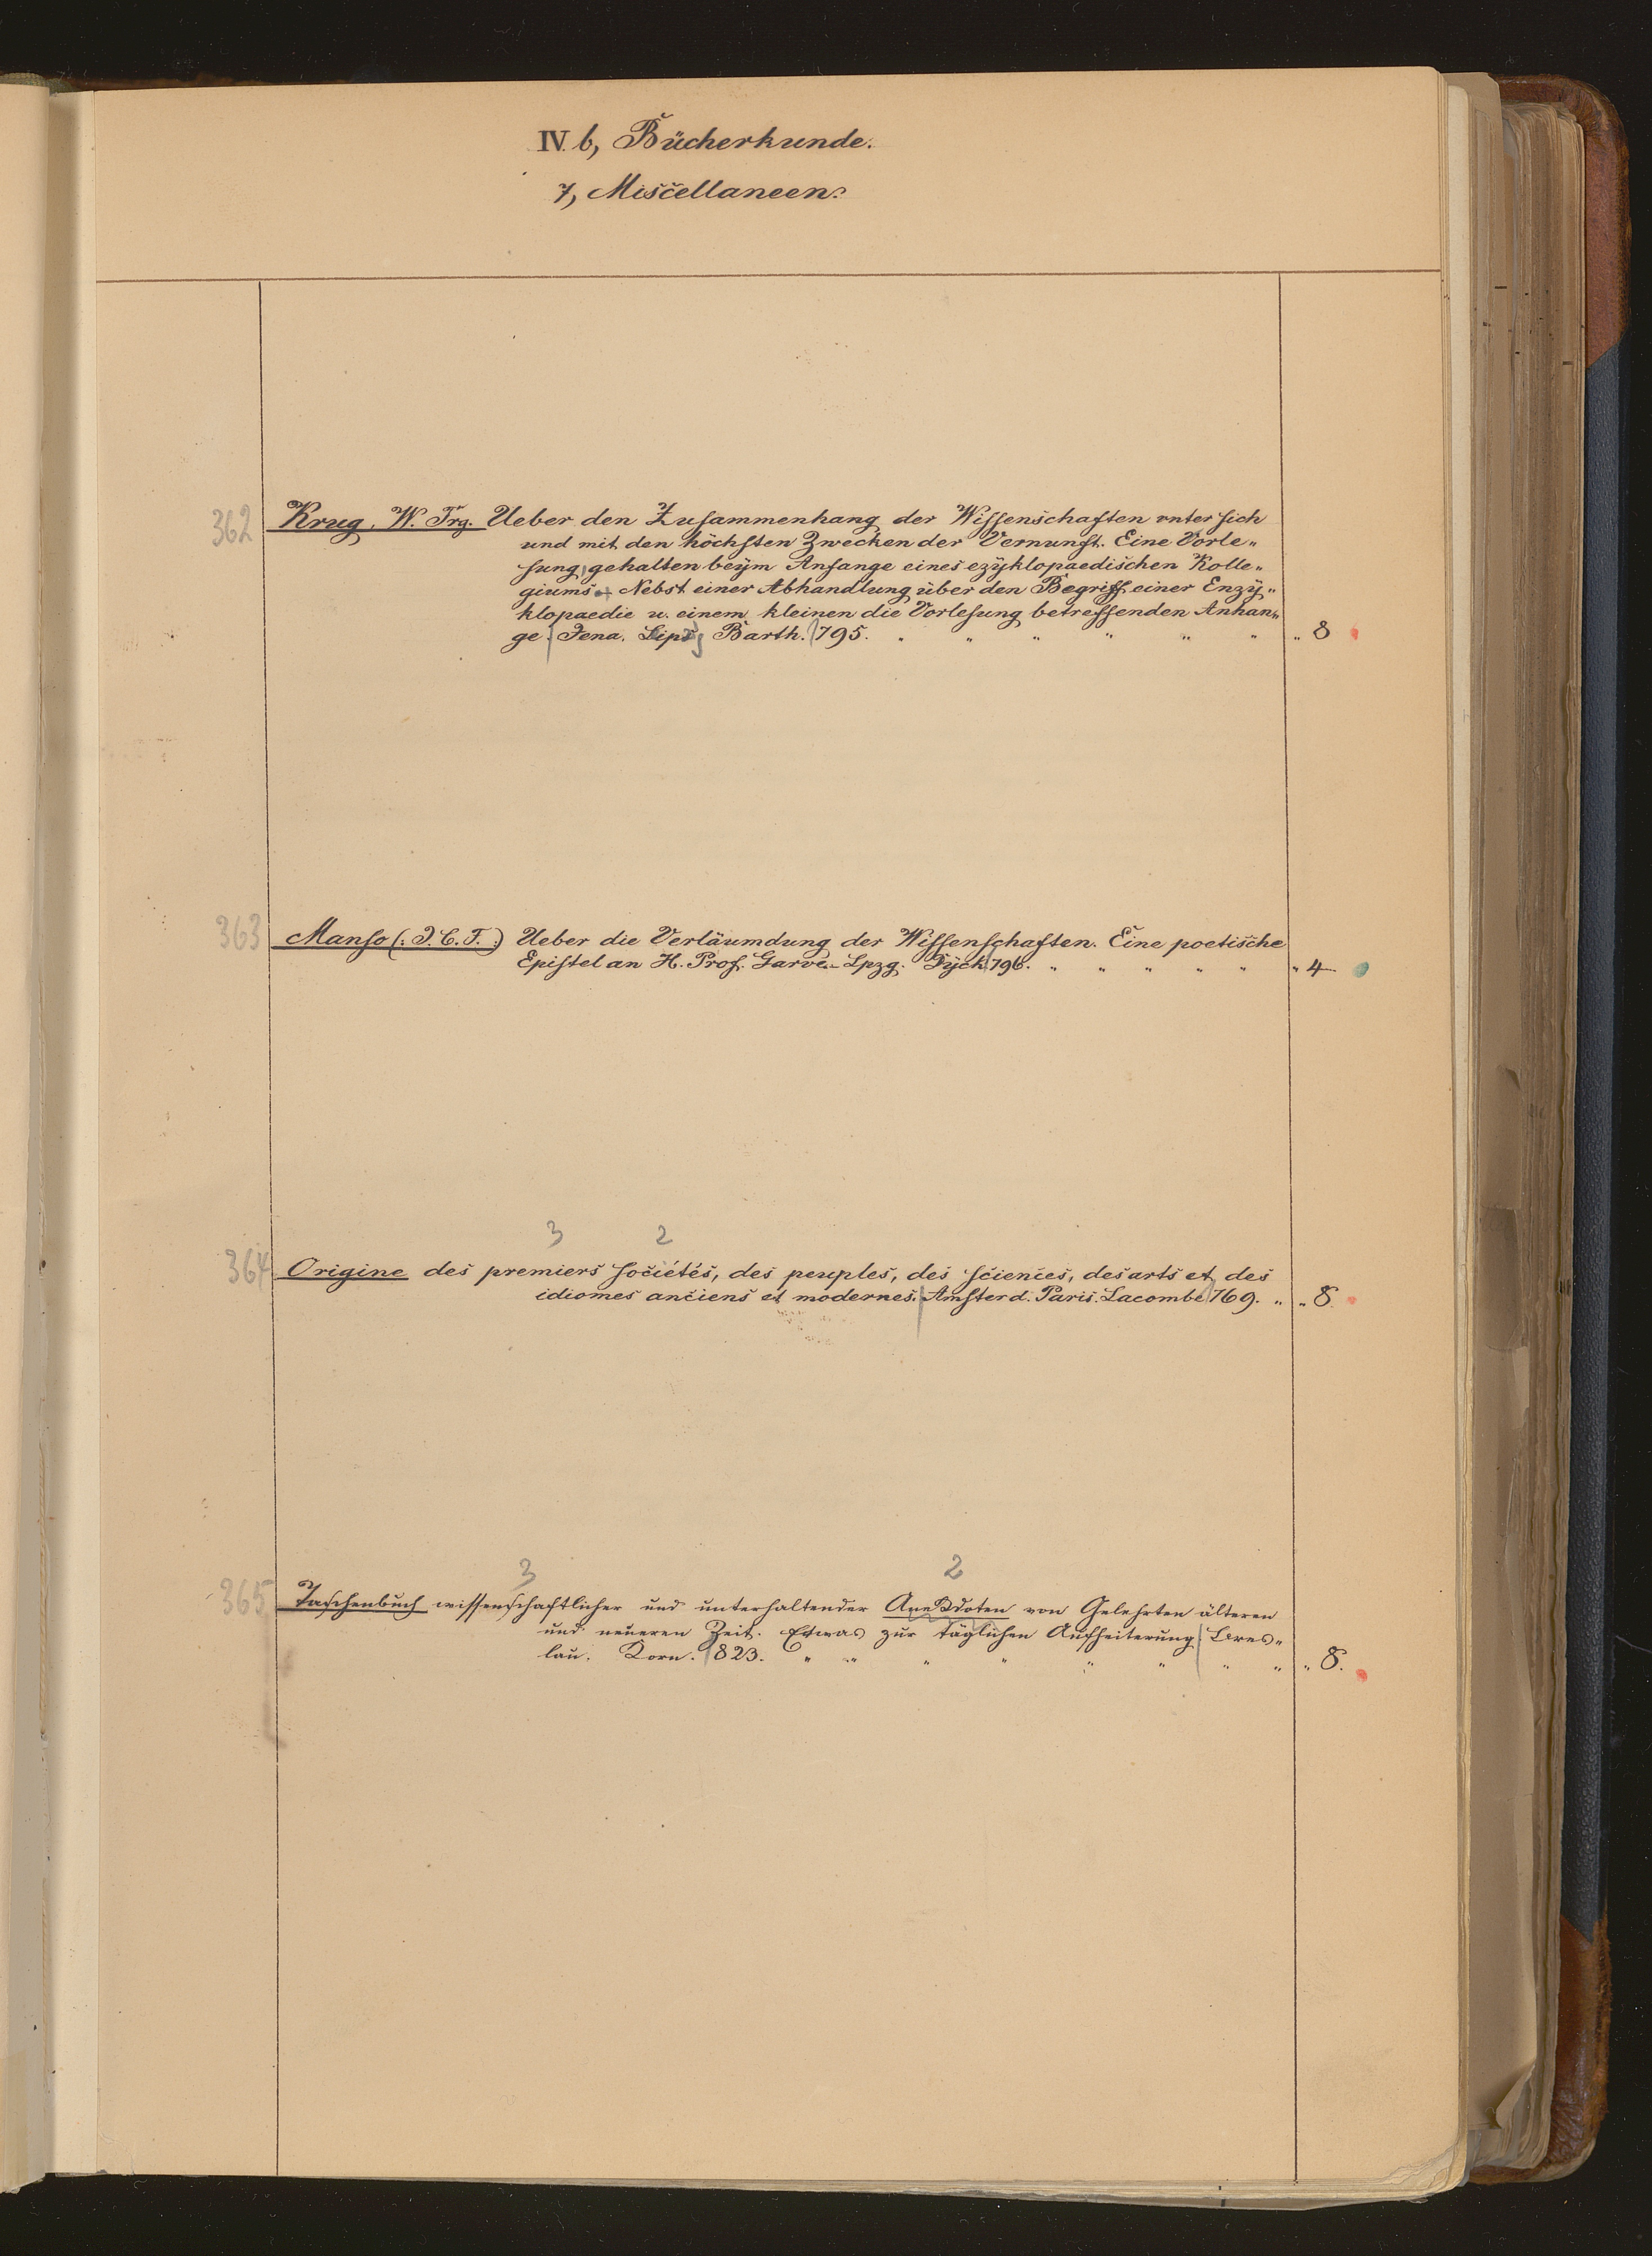 IV. b, Bücherkunde.
7, Miscellaneen.
362 Krug, W. Trg. Ueber den Zusammenhang der Wissenschaften unter sich
und mit den höchsten Zwecken der Vernunft. Eine Vorle„
sung, gehalten beym Anfange eines ezyklopaedischen Kolle„
giums. Nebst einer Abhandlung über den Begriff einer Enzy„
klopaedie u. einem kleinen die Vorlesung betreffenden Anhan„
ge. Jena. Lipz Barth. 795. „ „ „ „ „ „ „ 8
363 Manso (: J. C. F. :) Ueber die Verläumdung der Wissenschaften. Eine poetische
Epistel an H. Prof. Garve. – Lpzg. Dyck 796. „ „ „ „ „ „ 4
3 2
364 Origine des premiers sociétés, des peuples, des sciences, des arts et des
idiomes anciens et modernes. Amsterd. Paris. Lacombe 769. „ „ 8.
3 2
365 Taschenbuch wissenschaftlicher und unterhaltender Anekdoten von Gelehrten älteren
und neueren Zeit. Etwas zur täglichen Aufheiterung Bres„
lau. Korn. 823. „ „ „ „ „ „ „ „ „ 8.